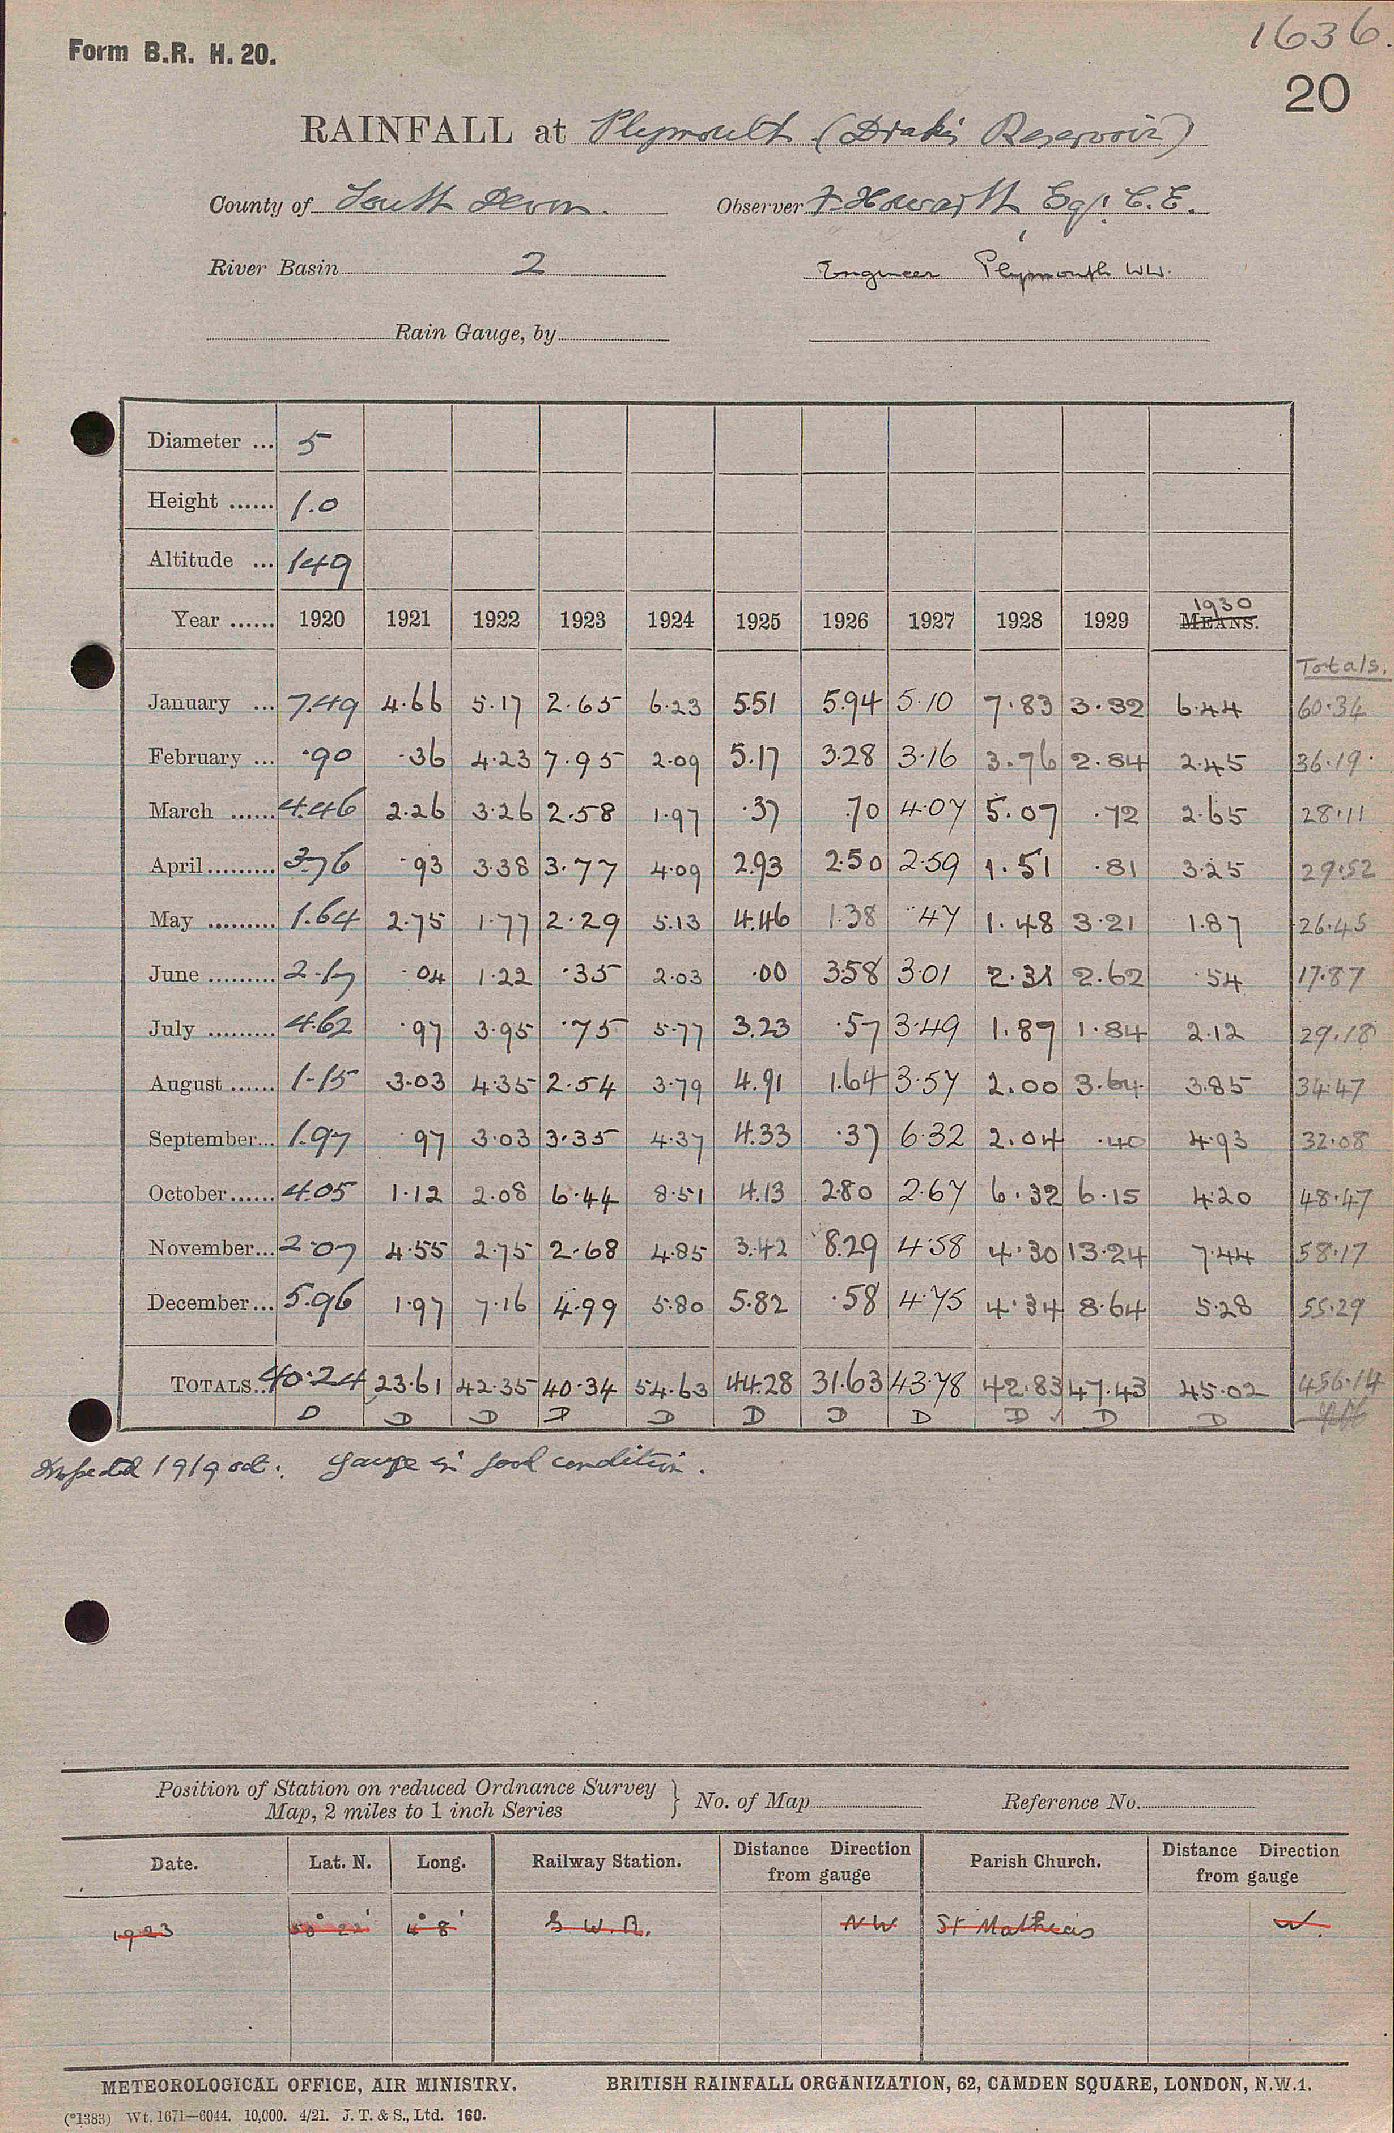 1636.
Form B.R. H. 20.
20
RAINFALL at Plymouth (Drake's Reservoir)
County of South Devon. Observer F. Howarth Esq. C.E.
River Basin 2 Engineer Plymouth W.W.
Rain Gauge, by
Diameter ... 5
Height ...... 1.0
Altitude ... 149
Year ...... 1920 1921 1922 1923 1924 1925 1926 1927 1928 1929 1930 MEANS.
Totals.
January ... 7.49 4.66 5.17 2.65 6.23 5.51 5.94 5.10 7.83 3.32 6.44 60.34
February ... .90 .36 4.23 7.95 2.09 5.17 3.28 3.16 3.76 2.84 2.45 36.19
March ...... 4.46 2.26 3.26 2.58 1.97 .37 .70 4.07 5.07 .72 2.65 28.11
April ......... 3.76 .93 3.38 3.77 4.09 2.93 2.50 2.59 1.51 .81 3.25 29.52
May ......... 1.64 2.75 1.77 2.29 5.13 4.46 1.38 .47 1.48 3.21 1.87 26.45
June ......... 2.17 .04 1.22 .35 2.03 .00 3.58 3.01 2.31 2.62 .54 17.87
July ......... 4.62 .97 3.95 .75 5.77 3.23 .57 3.49 1.87 1.84 2.12 29.18
August ...... 1.15 3.03 4.35 2.54 3.79 4.91 1.64 3.57 2.00 3.64 3.85 34.47
September... 1.97 .97 3.03 3.35 4.37 4.33 .37 6.32 2.04 .40 4.93 32.08
October ...... 4.05 1.12 2.08 6.44 8.51 4.13 2.80 2.67 6.32 6.15 4.20 48.47
November... 2.07 4.55 2.75 2.68 4.85 3.42 8.29 4.58 4.30 13.24 7.44 58.17
December... 5.96 1.97 7.16 4.99 5.80 5.82 .58 4.75 4.34 8.64 5.28 55.29
TOTALS.. 40.24 23.61 42.35 40.34 54.63 44.28 31.63 43.78 42.83 47.43 45.02 456.14
D D D D D D D D D ✓ D D
Inspected 1919 oct. gauge in good condition.
Position of Station on reduced Ordnance Survey Map, 2 miles to 1 inch Series } No. of Map Reference No.
Date. Lat. N. Long. Railway Station. Distance Direction from gauge Parish Church. Distance Direction from gauge
1923 50° 22' 4° 8' G. W. R. NW St Mathias W.
METEOROLOGICAL OFFICE, AIR MINISTRY. BRITISH RAINFALL ORGANIZATION, 62, CAMDEN SQUARE, LONDON, N.W.1.
(*1383) Wt. 1671—6044. 10,000. 4/21. J. T. & S., Ltd. 160.